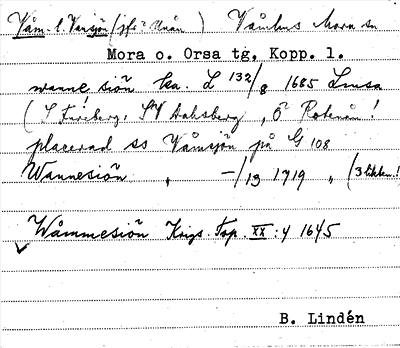 Våm- l. Vansjön (jfr Unån) Våmhus Mora sn
Mora o. Orsa tg, Kopp. l.
wannesiön ka. L 132/8 1685 Lmsa
(S Fireberg, SV Aahsberg, Ö Rotenån!
placerad ss Våmsjön på G 108
Wannesiön " -/13 1719 " (3 likhm.!
Wåmmesiön Krigs. Top. XX:4 1645
B. Lindén